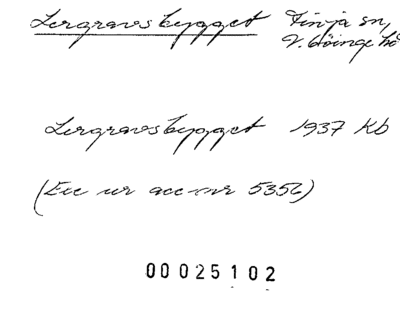 Lergravsbygget Finja sn,
V. Göinge hd
Lergravsbygget 1937 Kb
(Enl ur acc-nr 5356)
00025102